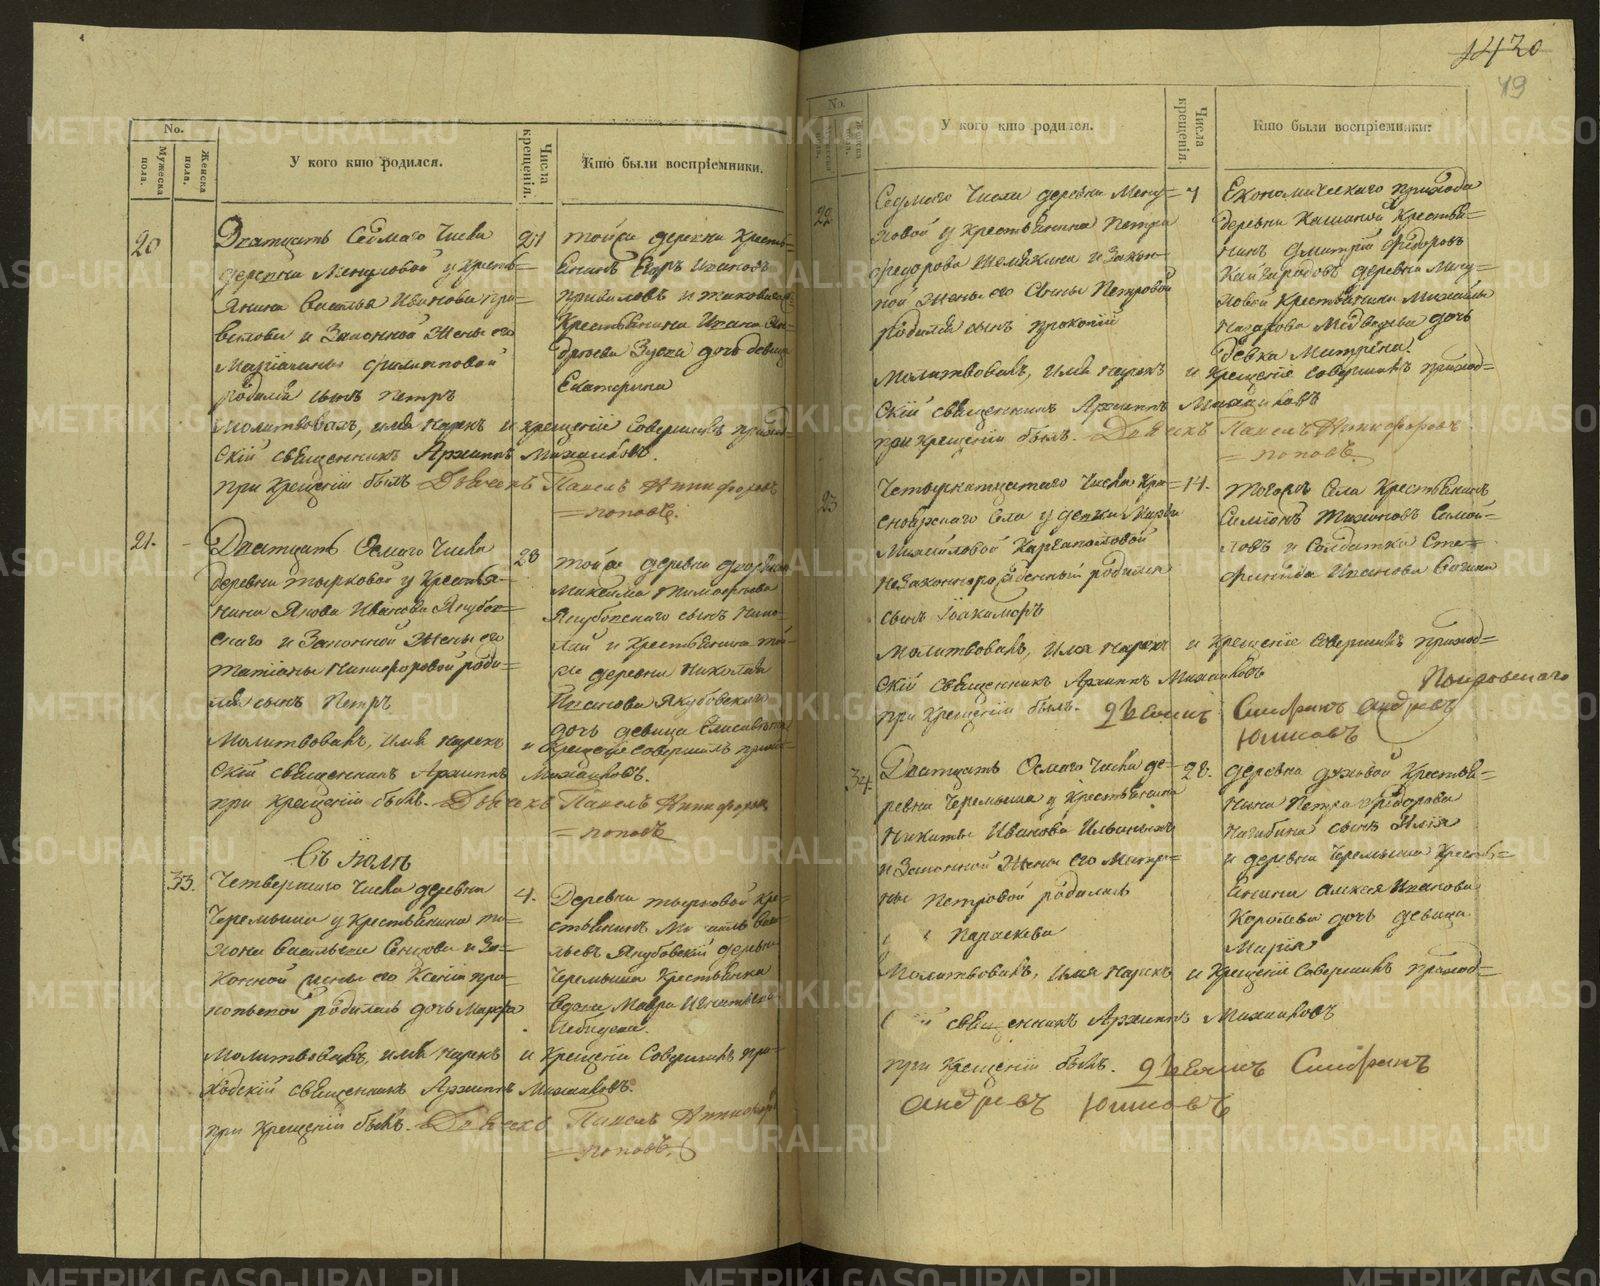 1420
49
No.
Мужеска пола.
Женска пола.
У кого кто родился.
Числа крещенія.
Кто были воспріемники.
20
Дватцать Седмаго Числа
деревни Менуловой у кресть=
янина Василья Иванова При=
вилова и Законной Жены его
филипповой
родился сынъ Петръ
27
тойже деревни Кресть=
Иванова
дочь девица
Екатерина
Молитвовалъ, имя нарекъ и крещеніе совершилъ приход=
скій священникъ Архиппъ Михайловъ.
при крещеніи былъ Дьячекъ Павелъ Никифоровъ
=поповъ.
21.
Дватцать Осмаго Числа
деревни тырковой у Крестья=
нина Якова Иванова Якубов=
скаго и Законной Жены его
татіаны Никифоровой роди=
лся сынъ Петръ
28
тойже деревни
Максима Тимофеева
Якубовскаго сынъ Нико=
лай и Крестьянина той=
же деревни Николая
Иванова Якубовскаго
дочь девица Елисавета
Молитвовалъ, имя нарекъ и Крещеніе совершилъ приход=
скій священникъ Архиппъ Михайловъ.
при крещеніи былъ. Дьячекъ Павелъ Никифоровъ
=поповъ
Съ Іюлъ
33.
Четвертаго Числа деревни
Черемыша у крестьянина
Васильева Сенцова и За=
конной жены его Ксеніи про=
копьевой родилась дочь Марфа
4.
Деревни тырковой Кре=
стьянинъ
Якубовскій деревни
Черемыша Крестьянка
вдова Мавра Игнатьева
Лебедева.
Молитвовалъ, имя нарекъ и Крещеніе Совершилъ при=
ходскій священникъ Архиппъ Михайловъ.
при крещеніи былъ. Дьячекъ Павелъ Никифоровъ
=поповъ.
No.
У кого кто родился.
Числа крещенія.
Кто были воспріемники:
22
Седмаго Числа деревни Мену=
ловой у крестьянина Петра
федорова Шемякина и Закон=
ной Жены его Анны Петровой
родился сынъ прокопій
7
Економическаго прихода
деревни Кашиной Крестья=
нинъ Дмитрій федоровъ
деревни Мену=
ловой Крестьянина Михайлы
Назарова Медведева дочь
девка Матрена.
Молитвовалъ, имя нарекъ и крещеніе совершилъ приход=
скій священникъ Архиппъ Михайловъ
при крещеніи былъ. Дьячекъ Павелъ Никифоровъ
=поповъ.
23
Четырнатцатаго Числа Кра=
сноярскаго села у девки Марьи
Михайловой Каргаполовой
незаконнорожденный родился
сынъ Іоакимъ
14.
тогожъ села Крестьянинъ
Симіонъ Тихоновъ Самой=
ловъ и Солдатка Сте=
фанида Иванова
Молитвовалъ, имя нарекъ и Крещеніе Совершилъ приход=
скій священникъ Архиппъ Михайловъ
Покровскаго
при крещеніи былъ. дьячекъ Стефанъ Андреевъ
Юшковъ
34.
Дватцать Осмаго Числа де=
ревни Черемыша у Крестьянина
Никиты Иванова Ильиныхъ
и Законной Жены его Матре=
ны Петровой родилась
Параскева
28.
деревни духовой Крестья=
нина Петра федорова
Нагибина сынъ Илія
и деревни Черемыша Кресть=
янина Алексея Иванова
Королева дочь девица
Марія
Молитвовалъ, имя нарекъ и Крещеніе Совершилъ приход=
священникъ Архиппъ Михайловъ
при крещеніи былъ. дьячекъ Стефанъ
Андреевъ Юшковъ
METRIKI.GASO-URAL.RU